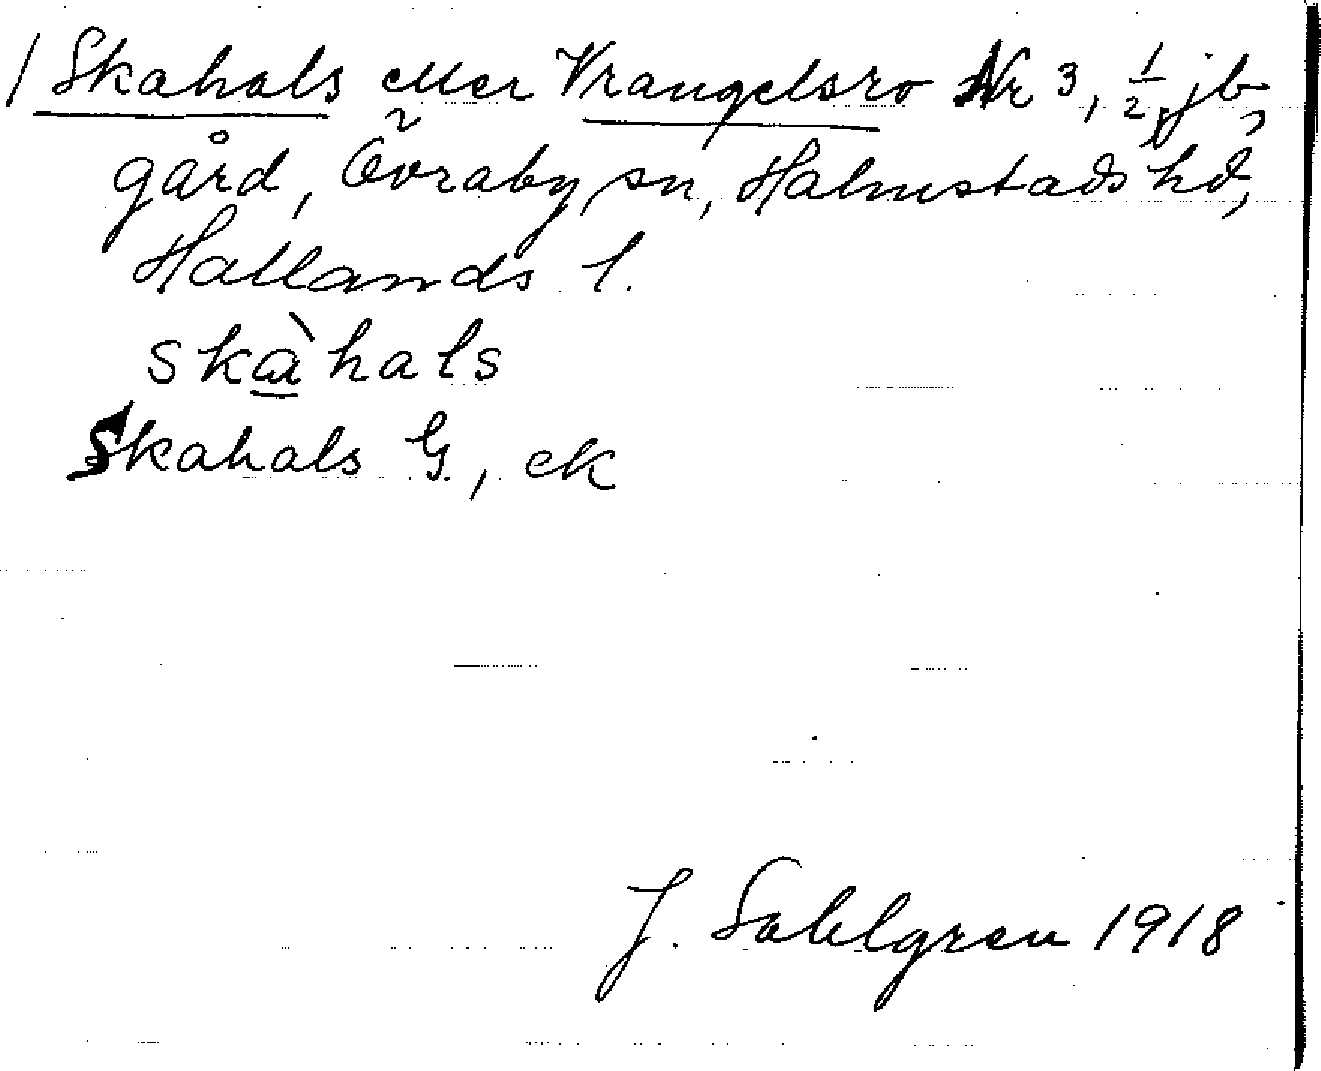 / Skahals eller Vrangelsro Nr 3, 1/2 jb,
gård, Övraby sn, Halmstads hd,
Hallands l.
skàhals
Skahals G., ek
J. Sahlgren 1918